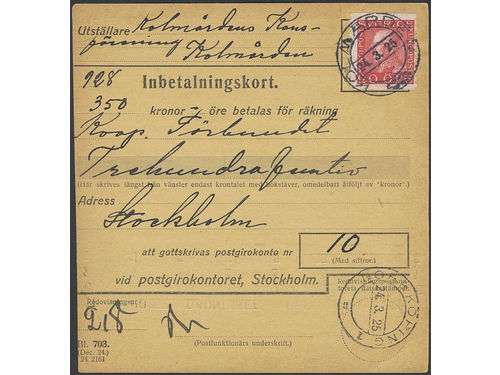 Utställare Kolmårdens Kon-
förening Kolmården
KOLMÅRDEN
24. 3. 25
928
Inbetalningskort.
350 kronor - öre betalas för räkning
Koop. Förbundet
Trehundrafemtio
(Här skrives längst från vänster endast krontalet med bokstäver, omedelbart åtföljt av "kronor".)
Adress
Stockholm
att gottskrivas postgirokonto nr 10
(Med siffror.)
vid postgirokontoret, Stockholm.
Redovisningspostkontorets datumstämpel.
Redovisningsnr
218
24. 3. 25
NORRKÖPING
1
Bl. 703.
(Dec. 24.)
24 2161
(Postfunktionärs underskrift.)